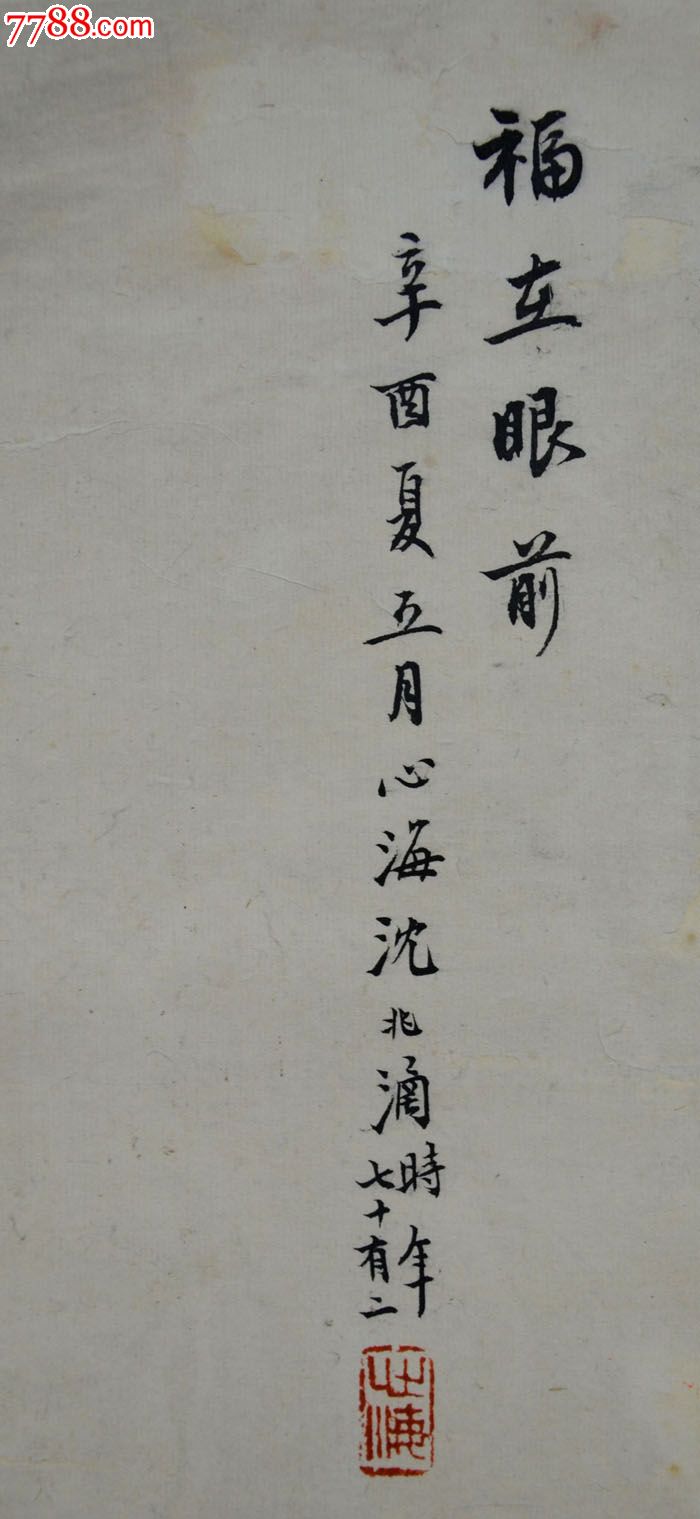 7788.com
福在眼前
辛酉夏五月心海沈兆涵時年
七十有二
心海